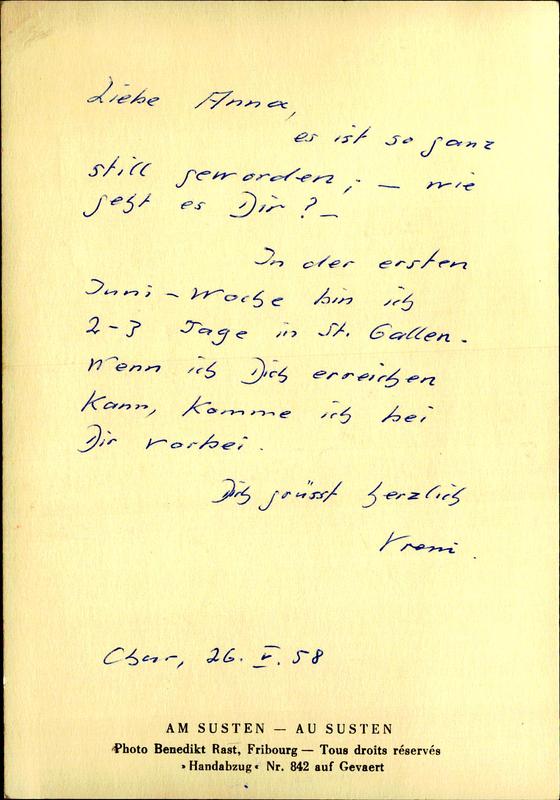 Liebe Anna,
es ist so ganz
still geworden; — wie
geht es Dir? —
In der ersten
Juni-Woche bin ich
2-3 Tage in St. Gallen.
Wenn ich Dich erreichen
kann, komme ich bei
Dir vorbei.
Dich grüsst herzlich
Vreni.
Chur, 26. V. 58
AM SUSTEN — AU SUSTEN
Photo Benedikt Rast, Fribourg — Tous droits réservés
»Handabzug« Nr. 842 auf Gevaert